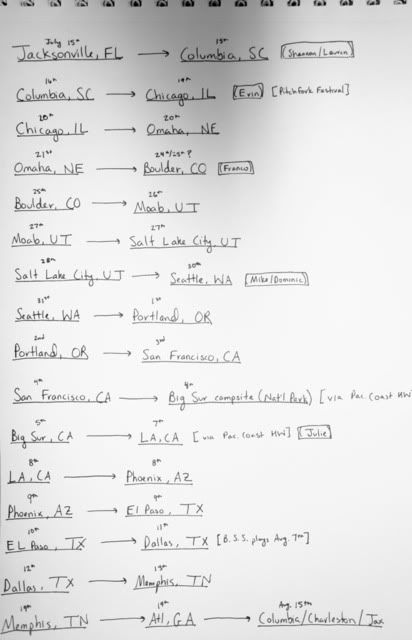 July 15th 15th
Jacksonville, FL → Columbia, SC [Shannon/Lauren]
16th 19th
Columbia, SC → Chicago, IL [Erin] [Pitchfork Festival]
20th 20th
Chicago, IL → Omaha, NE
21st 24th/25th?
Omaha, NE → Boulder, CO [Franco]
25th 26th
Boulder, CO → Moab, UT
27th 27th
Moab, UT → Salt Lake City, UT
28th 30th
Salt Lake City, UT → Seattle, WA [Mike/Dominic]
31st 1st
Seattle, WA → Portland, OR
2nd 3rd
Portland, OR → San Francisco, CA
4th 4th
San Francisco, CA → Big Sur campsite (Nat'l Park) [via Pac. Coast HW
5th 7th
Big Sur, CA → LA, CA [via Pac. Coast HW] [Julie]
8th 8th
LA, CA → Phoenix, AZ
9th 9th
Phoenix, AZ → El Paso, TX
10th 11th
El Paso, TX → Dallas, TX [B.S.S. plays Aug. 7th]
12th 13th
Dallas, TX → Memphis, TN
14th 14th Aug. 15th
Memphis, TN → Atl, GA → Columbia/Charleston/Jax